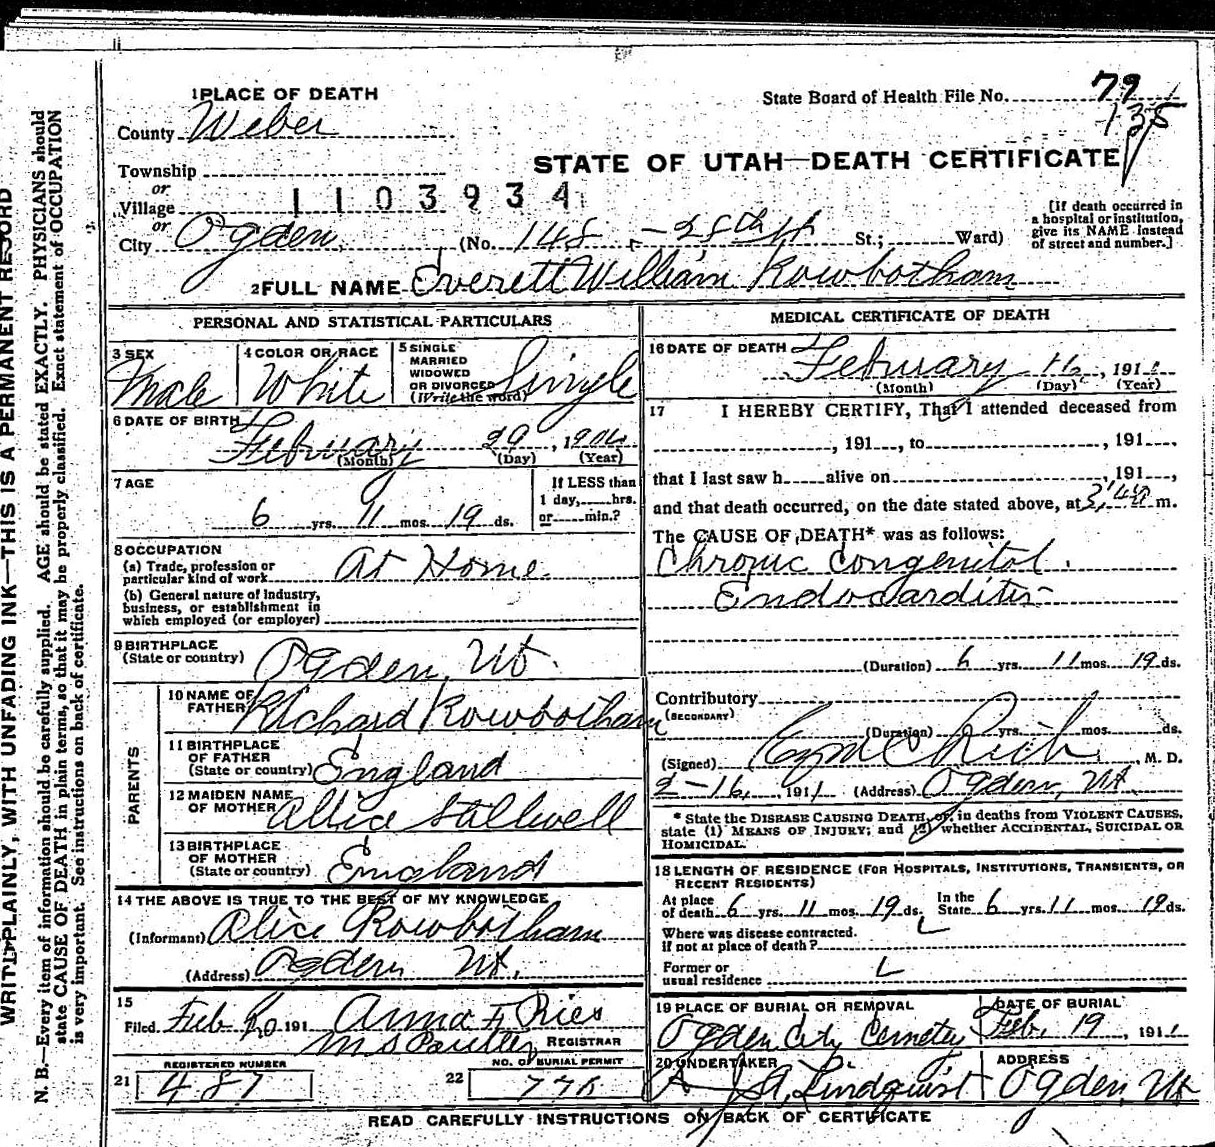 79
135
1 PLACE OF DEATH
State Board of Health File No.
County Weber
STATE OF UTAH—DEATH CERTIFICATE
Township
or
Village
1103934
or
City Ogden, (No. 148 - 28th St.; Ward)
[If death occurred in a hospital or institution, give its NAME instead of street and number.]
2 FULL NAME Everett William Rowbotham
PERSONAL AND STATISTICAL PARTICULARS
3 SEX Male
4 COLOR OR RACE White
5 SINGLE MARRIED WIDOWED OR DIVORCED (Write the word) Single
6 DATE OF BIRTH February 29, 1904
(Month) (Day) (Year)
7 AGE
6 yrs. 11 mos. 19 ds.
If LESS than 1 day, hrs. or min.?
8 OCCUPATION
(a) Trade, profession or particular kind of work At Home
(b) General nature of industry, business, or establishment in which employed (or employer)
9 BIRTHPLACE (State or country) Ogden, Ut.
PARENTS
10 NAME OF FATHER Richard Rowbotham
11 BIRTHPLACE OF FATHER (State or country) England
12 MAIDEN NAME OF MOTHER Allice Stillwell
13 BIRTHPLACE OF MOTHER (State or country) England
14 THE ABOVE IS TRUE TO THE BEST OF MY KNOWLEDGE
(Informant) Alice Rowbotham
(Address) Ogden Ut.
15
Filed Feb 20 191 Anna F Ries
REGISTRAR
REGISTERED NUMBER
21 487
NO. OF BURIAL PERMIT
22
MEDICAL CERTIFICATE OF DEATH
16 DATE OF DEATH
February 16, 1911
(Month) (Day) (Year)
17 I HEREBY CERTIFY, That I attended deceased from
, 191 , to , 191 ,
that I last saw h alive on , 191 ,
and that death occurred, on the date stated above, at m.
The CAUSE OF DEATH* was as follows:
Chronic Congenital
Endocarditis
(Duration) 6 yrs. 11 mos. 19 ds.
Contributory
(SECONDARY)
(Duration) yrs. mos. ds.
(Signed) Rich, M. D.
2-16, 1911 (Address) Ogden, Ut.
* State the DISEASE CAUSING DEATH, or, in deaths from VIOLENT CAUSES, state (1) MEANS OF INJURY; and (2) whether ACCIDENTAL, SUICIDAL OR HOMICIDAL.
18 LENGTH OF RESIDENCE (FOR HOSPITALS, INSTITUTIONS, TRANSIENTS, OR RECENT RESIDENTS)
At place of death 6 yrs. 11 mos. 19 ds. In the State 6 yrs. 11 mos. 19 ds.
Where was disease contracted.
If not at place of death?
Former or
usual residence
19 PLACE OF BURIAL OR REMOVAL
Ogden City Cemetery
DATE OF BURIAL
Feb. 19, 1911
20 UNDERTAKER
Lindquist
ADDRESS
Ogden, Ut
READ CAREFULLY INSTRUCTIONS ON BACK OF CERTIFICATE
WRITE PLAINLY, WITH UNFADING INK—THIS IS A PERMANENT RECORD
N. B.—Every item of information should be carefully supplied. AGE should be stated EXACTLY. PHYSICIANS should
state CAUSE OF DEATH in plain terms, so that it may be properly classified. Exact statement of OCCUPATION
is very important. See instructions on back of certificate.